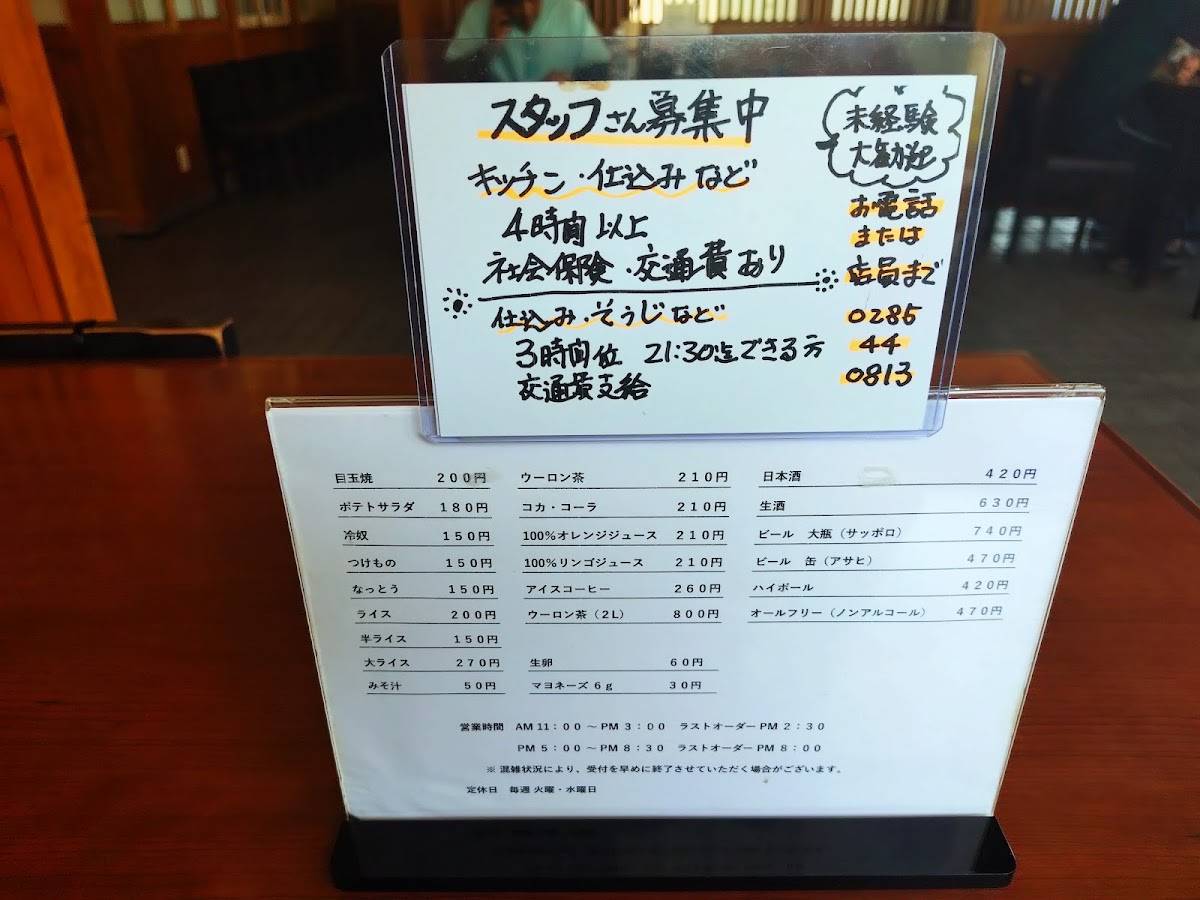 スタッフさん募集中
キッチン・仕込みなど
4時間以上
社会保険・交通費あり
仕込み・そうじなど
3時間位 21:30迄できる方
交通費支給
未経験
大歓迎
お電話
または
店員まで
0285
44
0813
目玉焼 200円
ポテトサラダ 180円
冷奴 150円
つけもの 150円
なっとう 150円
ライス 200円
半ライス 150円
大ライス 270円
みそ汁 50円
ウーロン茶 210円
コカ・コーラ 210円
100%オレンジジュース 210円
100%リンゴジュース 210円
アイスコーヒー 260円
ウーロン茶(2L) 800円
生卵 60円
マヨネーズ6g 30円
日本酒 420円
生酒 630円
ビール 大瓶(サッポロ) 740円
ビール 缶(アサヒ) 470円
ハイボール 420円
オールフリー(ノンアルコール) 470円
営業時間 AM 11:00 ～ PM 3:00 ラストオーダー PM 2:30
PM 5:00 ～ PM 8:30 ラストオーダー PM 8:00
※ 混雑状況により、受付を早めに終了させていただく場合がございます。
定休日 毎週 火曜・水曜日